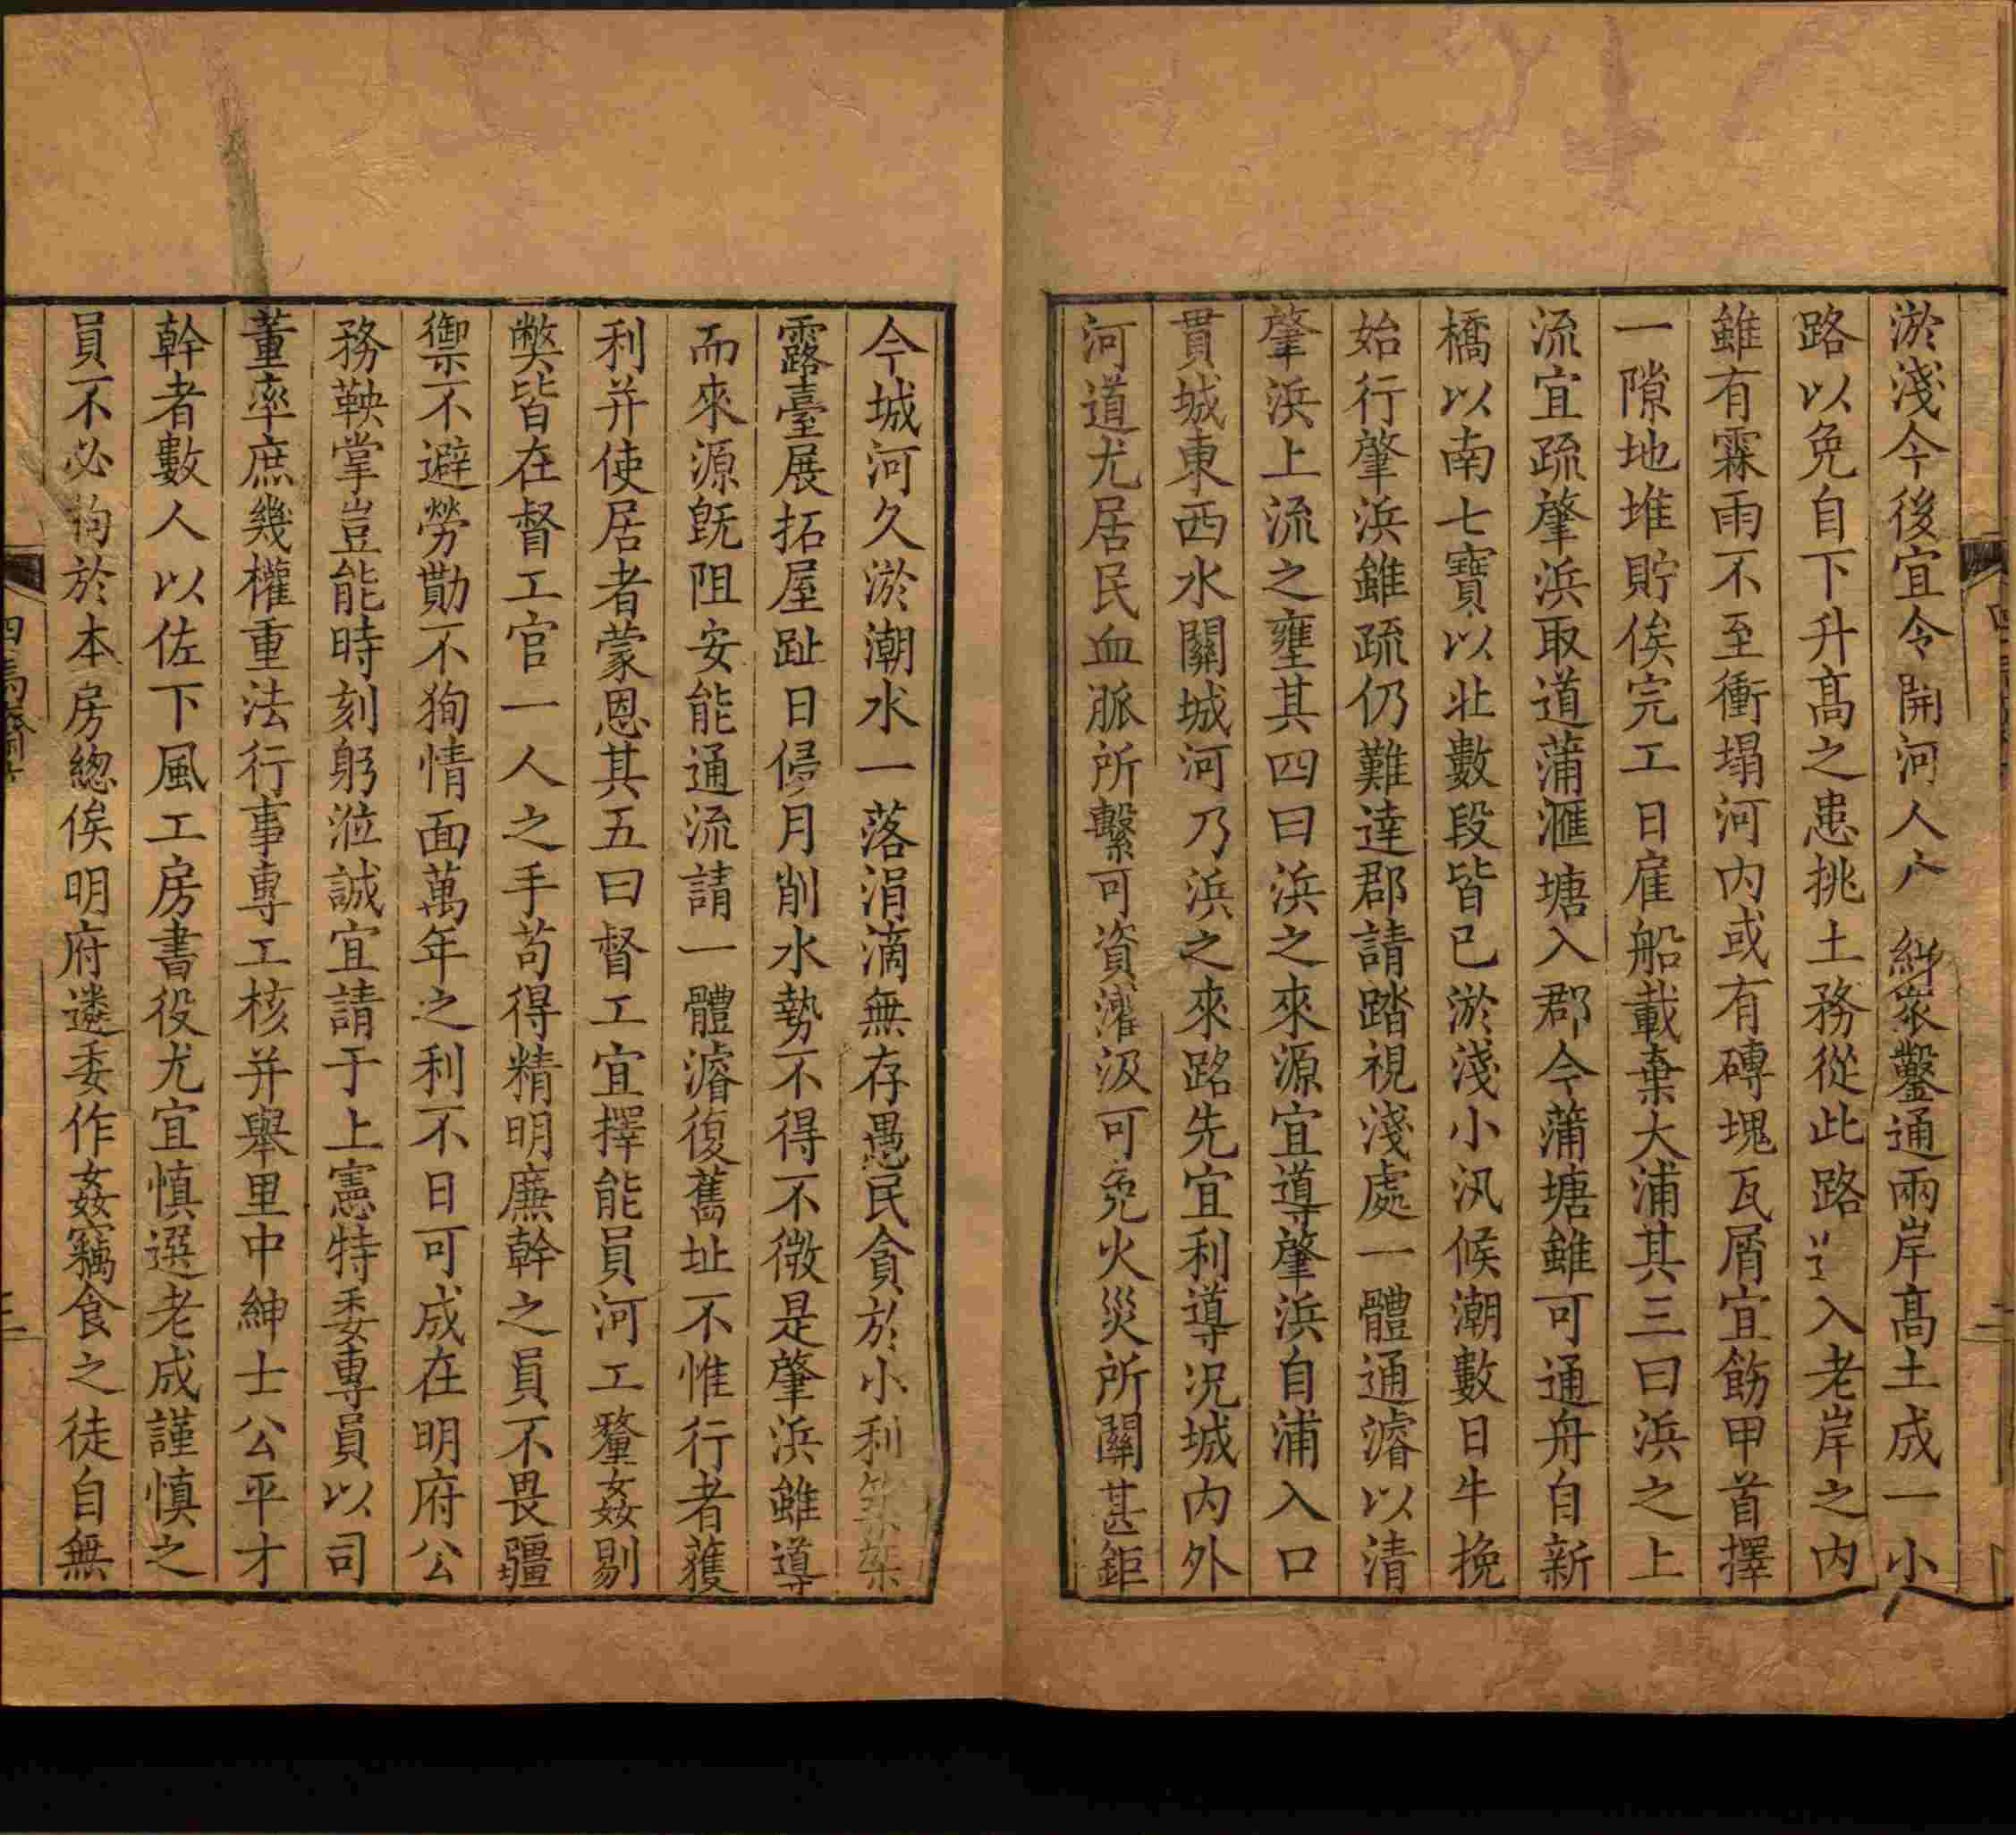 淤淺今後宜令開河人戶糾衆鑿通兩岸高土成一小
路以免自下升高之患挑土務從此路入老岸之內
雖有霖雨不至衝塌河內或有磚塊瓦屑宜飭甲首擇
一隙地堆貯俟完工日雇船載棄大浦其三曰浜之上
流宜疏肇浜取道蒲滙塘入郡今蒲塘雖可通舟自新
橋以南七寶以北數段皆已淤淺小汛候潮數日牛挽
始行肇浜雖疏仍難達郡請踏視淺處一體通濬以清
肇浜上流之壅其四曰浜之來源宜導肇浜自浦入口
貫城東西水關城河乃浜之來路先宜利導况城內外
河道尤居民血脈所繫可資灌汲可免火災所關甚鉅
今城河久淤潮水一落涓滴無存愚民貪於小利築架
露臺展拓屋趾日侵月削水勢不得不微是肇浜雖導
而來源旣阻安能通流請一體濬復舊址不惟行者獲
利并使居者蒙恩其五曰督工宜擇能員河工釐姦剔
弊皆在督工官一人之手苟得精明廉幹之員不畏疆
禦不避勞勩不狥情面萬年之利不日可成在明府公
務鞅掌豈能時刻躬涖誠宜請于上憲特委專員以司
董率庶幾權重法行事專工核并舉里中紳士公平才
幹者數人以佐下風工房書役尤宜慎選老成謹慎之
員不必拘於本房總俟明府遴委作姦竊食之徒自無